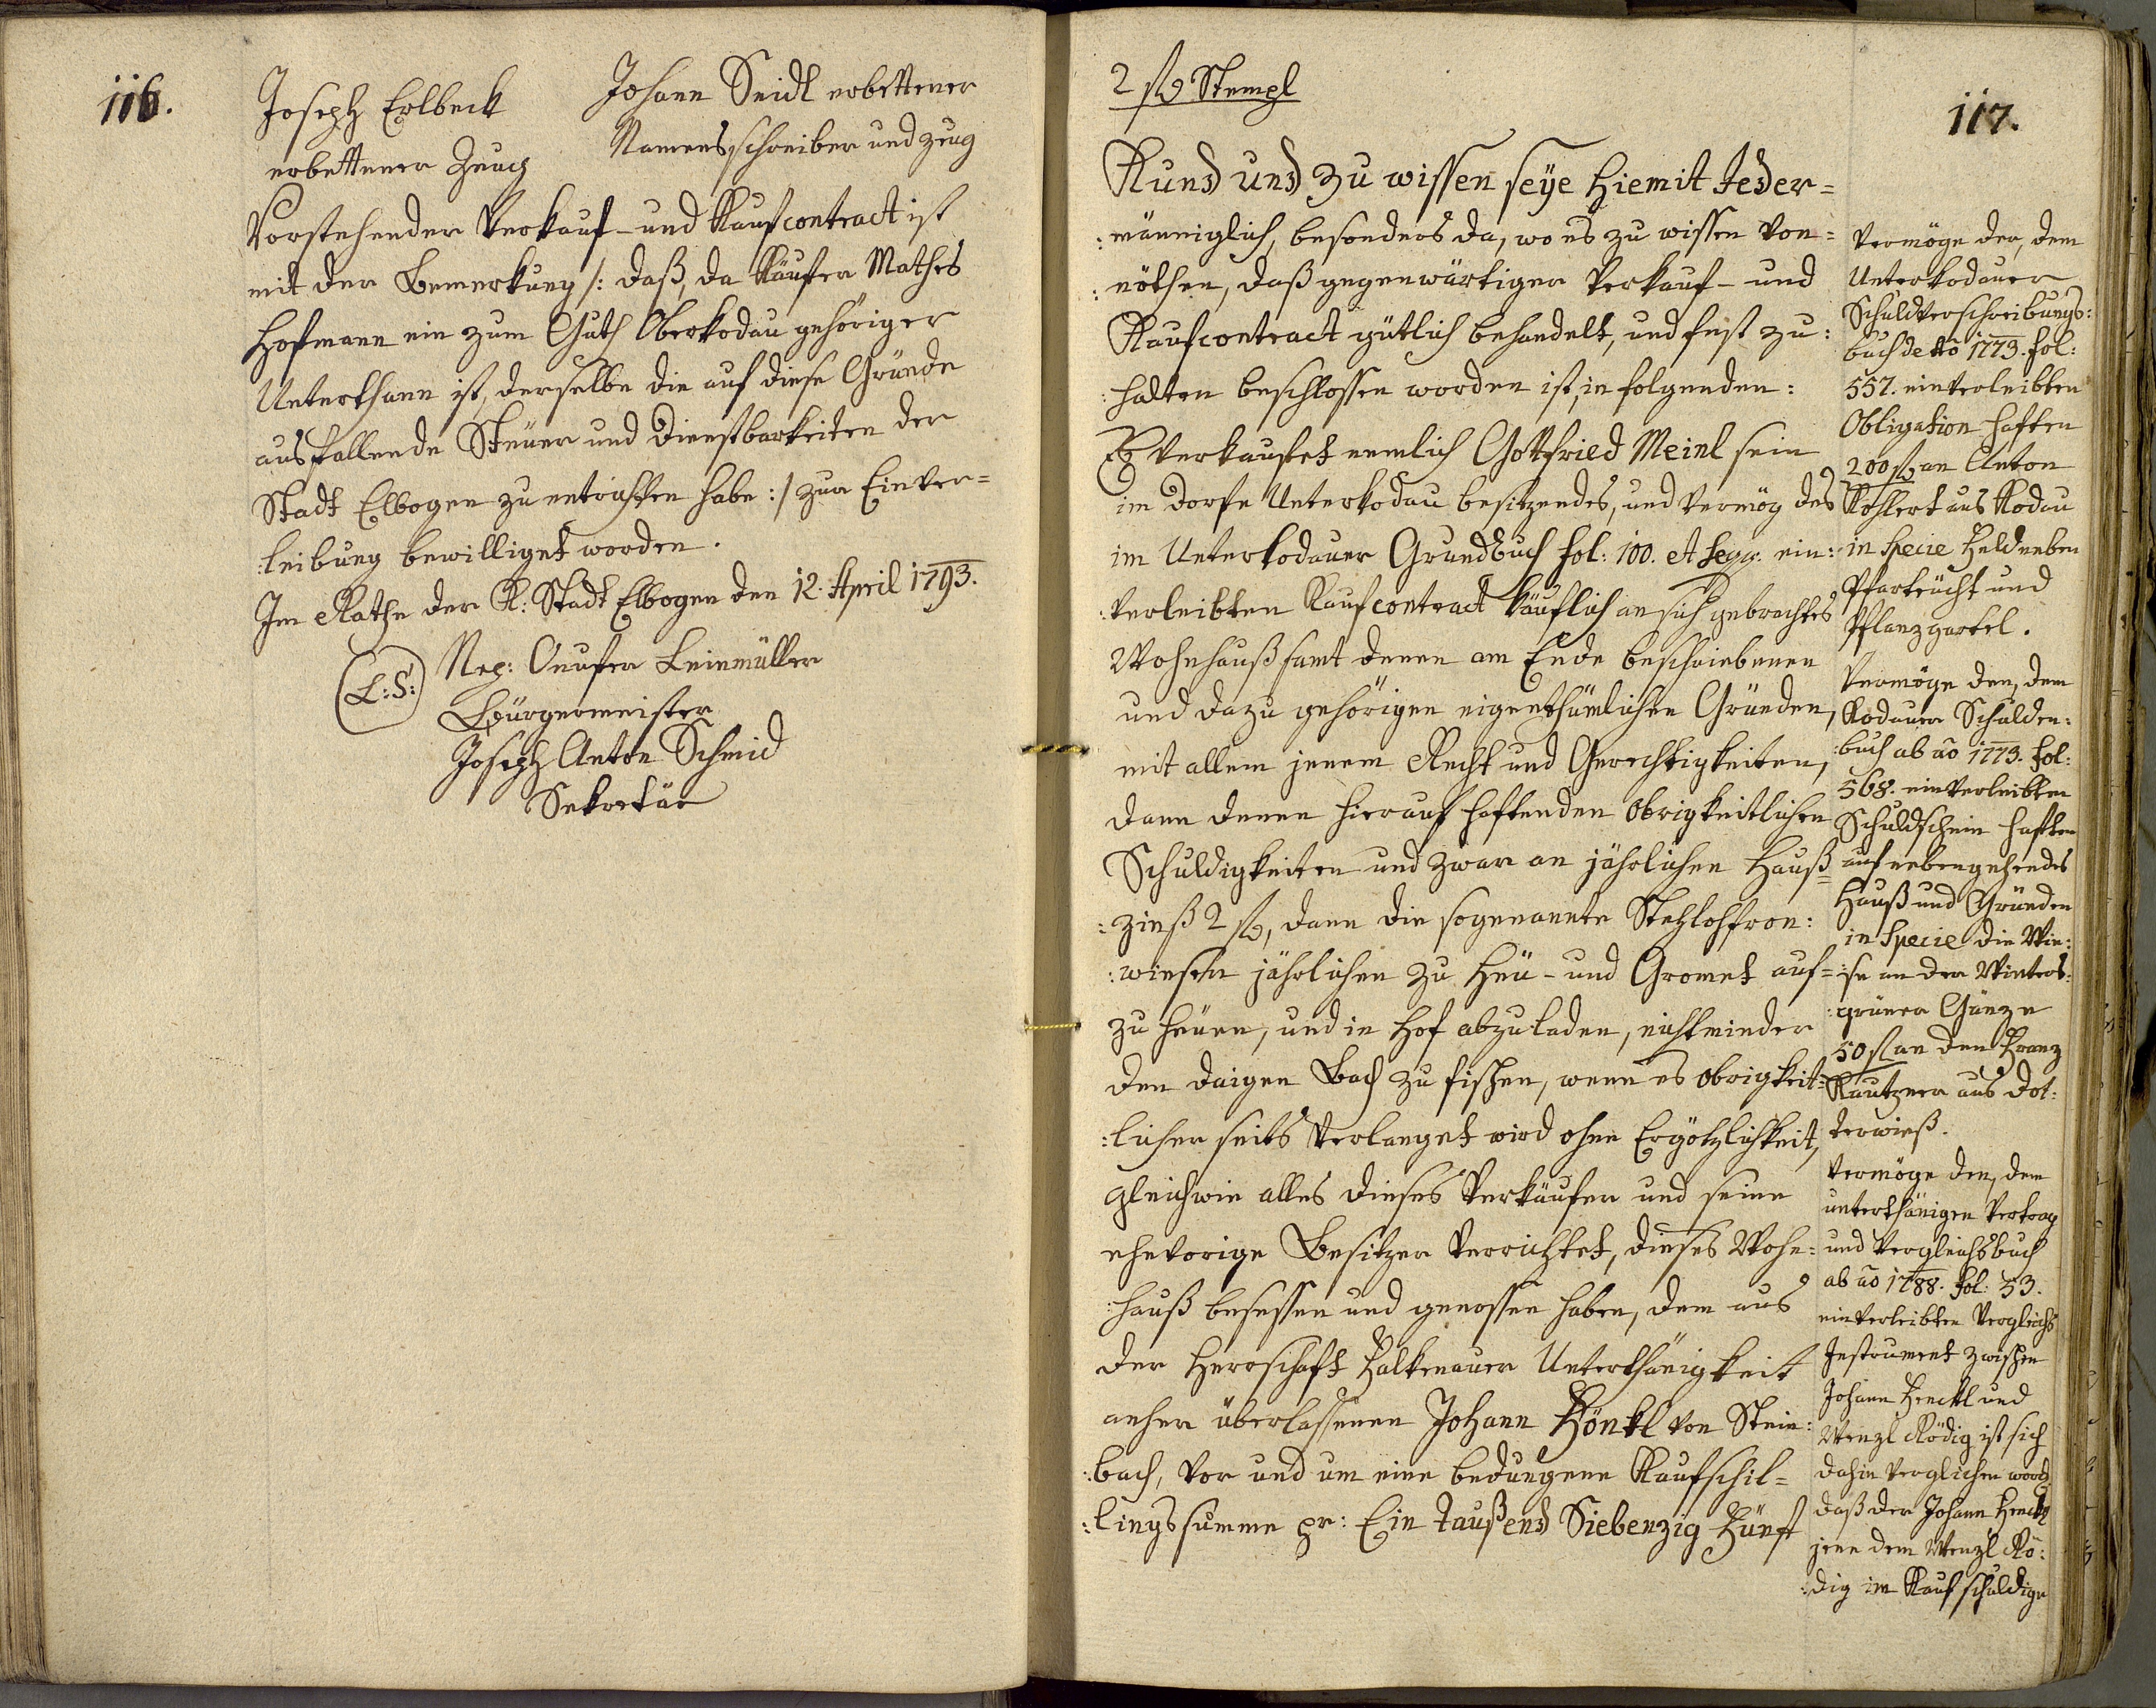 116.
Joseph Erlbeck
erbettener Zeuch
Johann Seidl erbettener
Namensschreiber und zeug
Vorstehender Verkauf- und Kaufcontract ist
mit der Bemerkung /: daß, da Käufer Mathes
Hofmann ein zum Guth Oberkodau gehöriger
Unterthann ist, derselbe die auf diese Gründe
ausfallende Steüer und Dienstbarkeiten der
Stadt Elbogen zu entrichten habe :/ zur Einver=
:leibung bewilliget worden.
Im Rathe der K: Stadt Elbogen den 12. April 1793.
(L:S:)
Nep: Onufer Leinmüller
Bürgermeister
Joseph Anton Schmid
Sekretär
117.
2 fl Stempl
Kund und zu wissen seÿe hiemit Jeder=
:männiglich, besonders da, wo es zu wissen von=
:nöthen, daß gegenwärtiger Verkauf- und
Kaufcontract gütlich behandelt, und fest zu:
:halten beschlossen worden ist, in folgenden:
Es Verkaufet nemlich Gottfried Meinl sein
im Dorfe Unterkodau besitzendes, und vermög des
im Unterkodauer Grundbuch fol: 100. et seqq: ein:
:verleibten Kaufcontract käuflich an sich gebrachtes
Wohnhauß samt denen am Ende beschriebenen
und dazu gehörigen eigenthümlichen Gründen,
mit allem jenem Recht und Gerechtigkeiten,
dann denen hierauf haftenden Obrigkeitlichen
Schuldigkeiten und zwar an jährlichen Hauß=
:zinß 2 fl, dann die sogenannte Stehlohfron:
:wiesen jährlichen zu Heü- und Gromet auf=
zu heüen, und in Hof abzuladen, nichtminder
den daigen Bach zu fischen, wenn es Obrigkeit=
:licher seits verlanget wird ohne Ergötzlichkeit,
gleichwie alles dieses Verkäufer und seine
ehevorige Besitzer verrichtet, dieses Wohn=
:hauß besessen und genossen haben, dem aus
der Herrschaft Falkenauer Unterthänigkeit
anher überlassenen Johann Hönkl von Stein:
:bach, vor und um eine bedungene Kaufschil=
:lingssumme pr: Ein taußend Siebenzig Fünf
Vermöge der, dem
Unterkodauer
Schuldverschreibungs:
buch de Ao 1773. fol:
557. einverleibten
Obligation haften
200 fl an Anton
Köhlert aus Kodau
in Specie Feld neben
und
Pflanzgartel.
Vermöge den, dem
Kodauer Schulden:
:buch ab ao 1773. fol:
568. einverleibten
Schuldschein haften
auf nebengehendes
Hauß und Gründen
in Specie die Wie:
:se an der Winters:
:grüner Gänze
50 fl an den Franz
Kautzner aus Dot:
terwieß.
Vermöge den, dem
unterthänigen Vertrag
und Vergleichsbuch
ab ao 1788. fol: 53.
einverleibten Vergleichs
Instrument zwischen
Johann Henckl und
Wenzl Rödig ist sich
dahin verglichen word
daß der Johann Henckl
jene dem Wenzl Rö:
:dig im Kauf schuldige